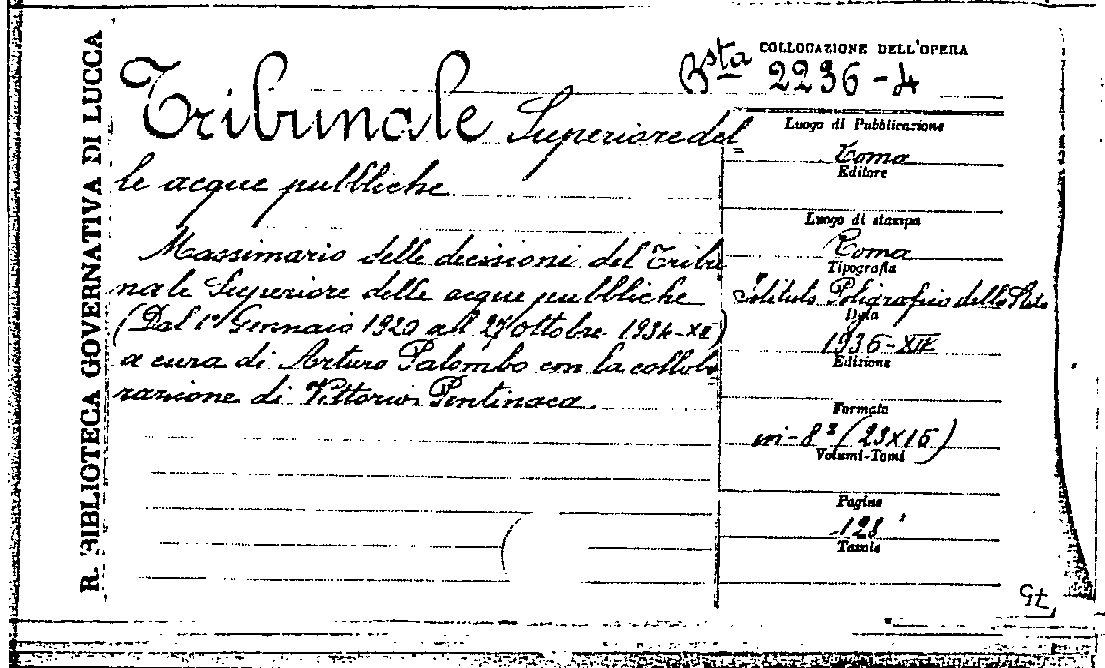 R. BIBLIOTECA GOVERNATIVA DI LUCCA
COLLOCAZIONE DELL'OPERA
Bsta 2236-4
Tribunale Superiore del=
le acque pubbliche
Massimario delle decisioni del Tribu
nale Superiore delle acque pubbliche
(Dal 1° Gennaio 1920 all 27 ottobre 1934-XII)
a cura di Arturo Palombo con la collabo
razione di Vittorio Pentinaca.
Luogo di Pubblicazione
Roma
Editore
Luogo di stampa
Roma
Tipografia
Istituto Poligrafico dello Stato
Data
1936-XIV
Edizione
Formato
in-8° (23x16)
Volumi-Tomi
Pagine
128
Tavole